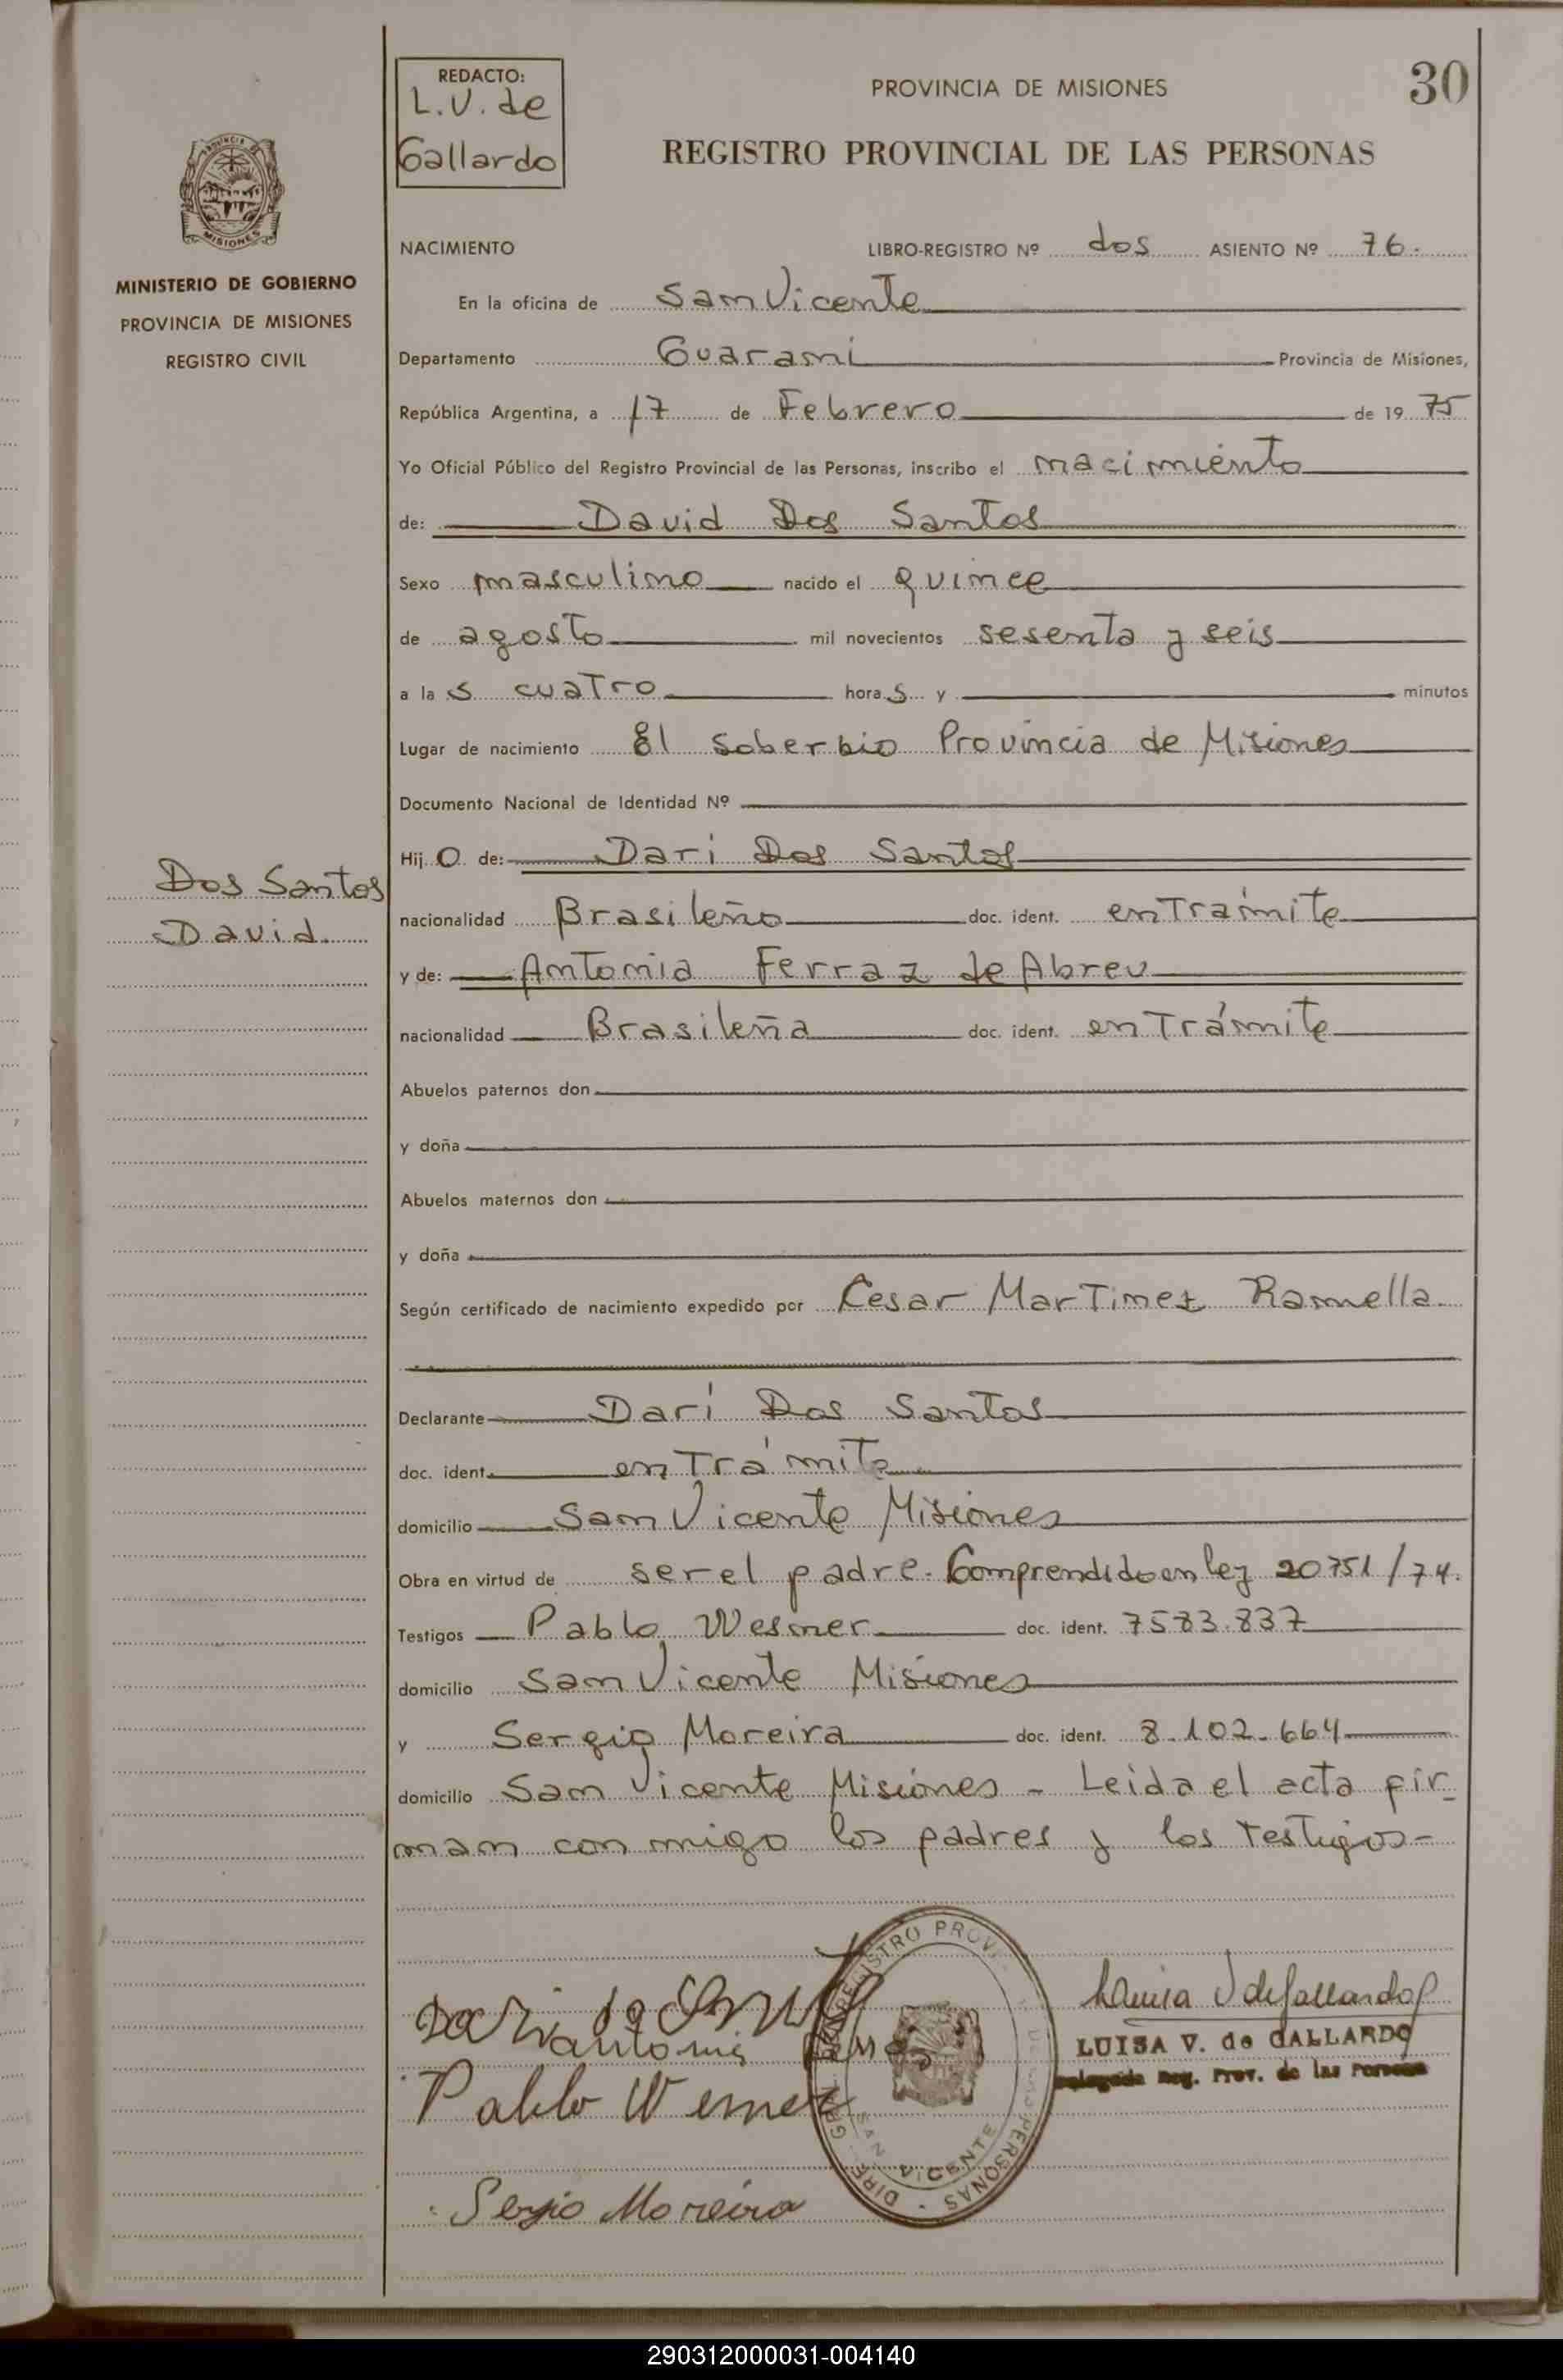 REDACTO:
L.V. de
Gallardo
PROVINCIA DE MISIONES
30
REGISTRO PROVINCIAL DE LAS PERSONAS
MISIONES
MINISTERIO DE GOBIERNO
PROVINCIA DE MISIONES
REGISTRO CIVIL
NACIMIENTO LIBRO-REGISTRO Nº dos ASIENTO Nº 76.
En la oficina de San Vicente
Departamento Guaraní Provincia de Misiones,
República Argentina, a 17 de Febrero de 1975
Yo Oficial Público del Registro Provincial de las Personas, inscribo el nacimiento
de: David Dos Santos
Sexo masculino nacido el quince
de agosto mil novecientos sesenta y seis
a las cuatro horas y minutos
Lugar de nacimiento El Soberbio Provincia de Misiones
Documento Nacional de Identidad Nº
Hijo de: Dari Dos Santos
Dos Santos
David
nacionalidad Brasileño doc. ident. en Trámite
y de: Antonia Ferraz de Abreu
nacionalidad Brasileña doc. ident. en Trámite
Abuelos paternos don
y doña
Abuelos maternos don
y doña
Según certificado de nacimiento expedido por Cesar Martinez Ramella
Declarante Darí Dos Santos
doc. ident. en Trámite
domicilio San Vicente Misiones
Obra en virtud de ser el padre. Comprendido en ley 20751/74.
Testigos Pablo Wesner doc. ident. 7583.837
domicilio San Vicente Misiones
y Sergio Moreira doc. ident. 8.102.664
domicilio San Vicente Misiones - Leida el acta fir-
man con migo los padres y los testigos-
Antonia
Pablo Wesner
Sergio Moreira
SAN VICENTE
Luisa V de Gallardo
LUISA V. de GALLARDO
Delegada Reg. Prov. de las Personas
290312000031-004140